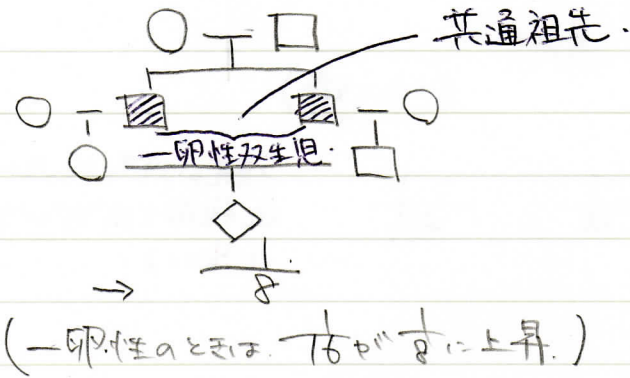 共通祖先.
一卵性双生児.
→ 1/8
(一卵性のときは. 1/16が1/8に上昇.)